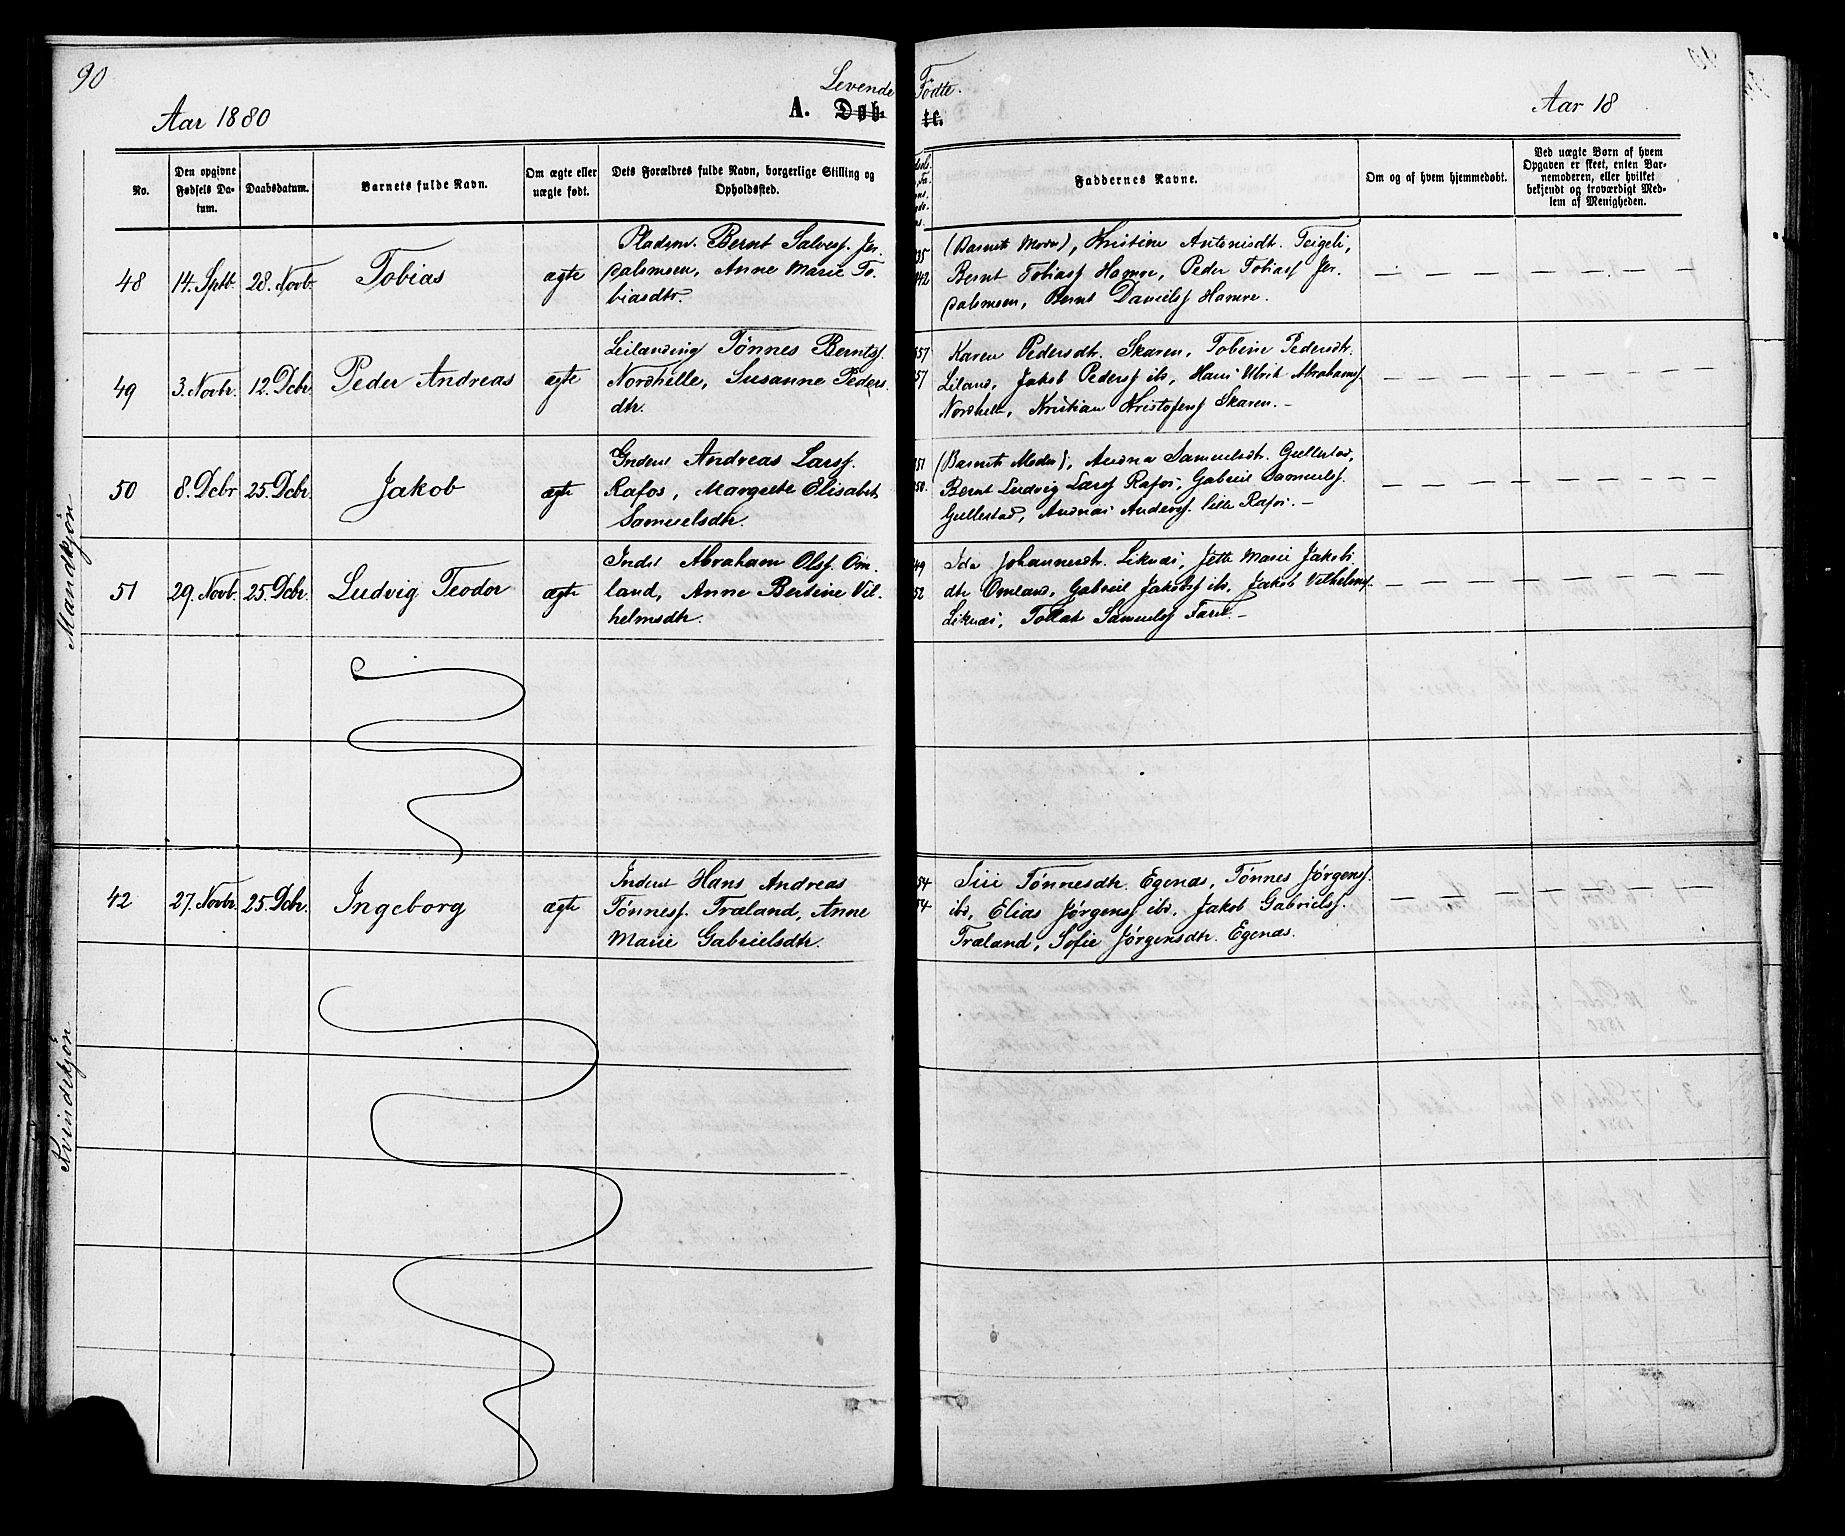 90
Levende Fødte.
Aar 1880
A. Døbte.
Aar 18
No.
Den opgivne Fødsels Datum.
Daabsdatum.
Barnets fulde Navn.
Om ægte eller uægte født.
Dets Forældres fulde Navn, borgerlige Stilling og Opholdssted.
Faddernes Navne.
Om og af hvem hjemmedøbt.
Ved uægte Børn af hvem Opgaven er skeet, enten Barnemoderen, eller hvilket bekjendt og troværdigt Medlem af Menigheden.
Mandkjøn
48 14. Sptb. 28. Novb. Tobias ægte
Pladsm. Bernt Salvess. Jer-
dalsmoen, Anne Marie To-
biasdtr.
35
42
(Barnets Moder), Kristine Antonisdt. Teigeli,
Bernt Tobiass Hamre, Peder Tobiass Jer-
dalsmoen, Bernt Daniels Hamre.
49 3. Novbr. 12. Dcbr. Peder Andreas ægte
Leilænding Tønnes Berntss.
Nordhelle, Susanne Peders-
dtr.
57
57
Karen Pedersdtr. Skaren, Tobine Pedersdtr.
Liland, Jakob Pederss ibd, Hans Ulrik Abrahams.
Nordhelle, Kristian Kristofers Skaren.
50 8. Dcbr 25. Dcbr. Jakob ægte
Gaardm Andreas Larss.
Rafos, Margrete Elisabet
Samuelsdtr.
51
50.
(Barnets Moder), Andrea Samuelsdtr. Gullestad,
Bernt Ludvig Larss Rafos, Gabriel Samuelss.
Gullestad, Andreas Anderss. lille Rafos.
51 29. Novb. 25. Dcbr. Ludvig Teodor ægte
Inderst Abraham Olss. Om-
land, Anne Bertine Vil-
helmsdtr.
49
52
Ida Johannesdt. Liknæs, Jette Marie Jakobs-
dtr Omland, Gabriel Jakobss ibd, Jakob Vilhelms.
Liknæs, Tollak Samuelss
Kvindekjøn
42 27. Novbr. 25. Dcbr. Ingeborg ægte
Inderst Hans Andreas
Tønness. Træland, Anne
Marie Gabrielsdtr.
54
54.
Siri Tønnesdtr. Egenæs, Tønnes Jørgenss.
ibd, Elias Jørgenss ibd, Jakob Gabrielss.
Træland, Sofie Jørgensdtr. Egenæs.